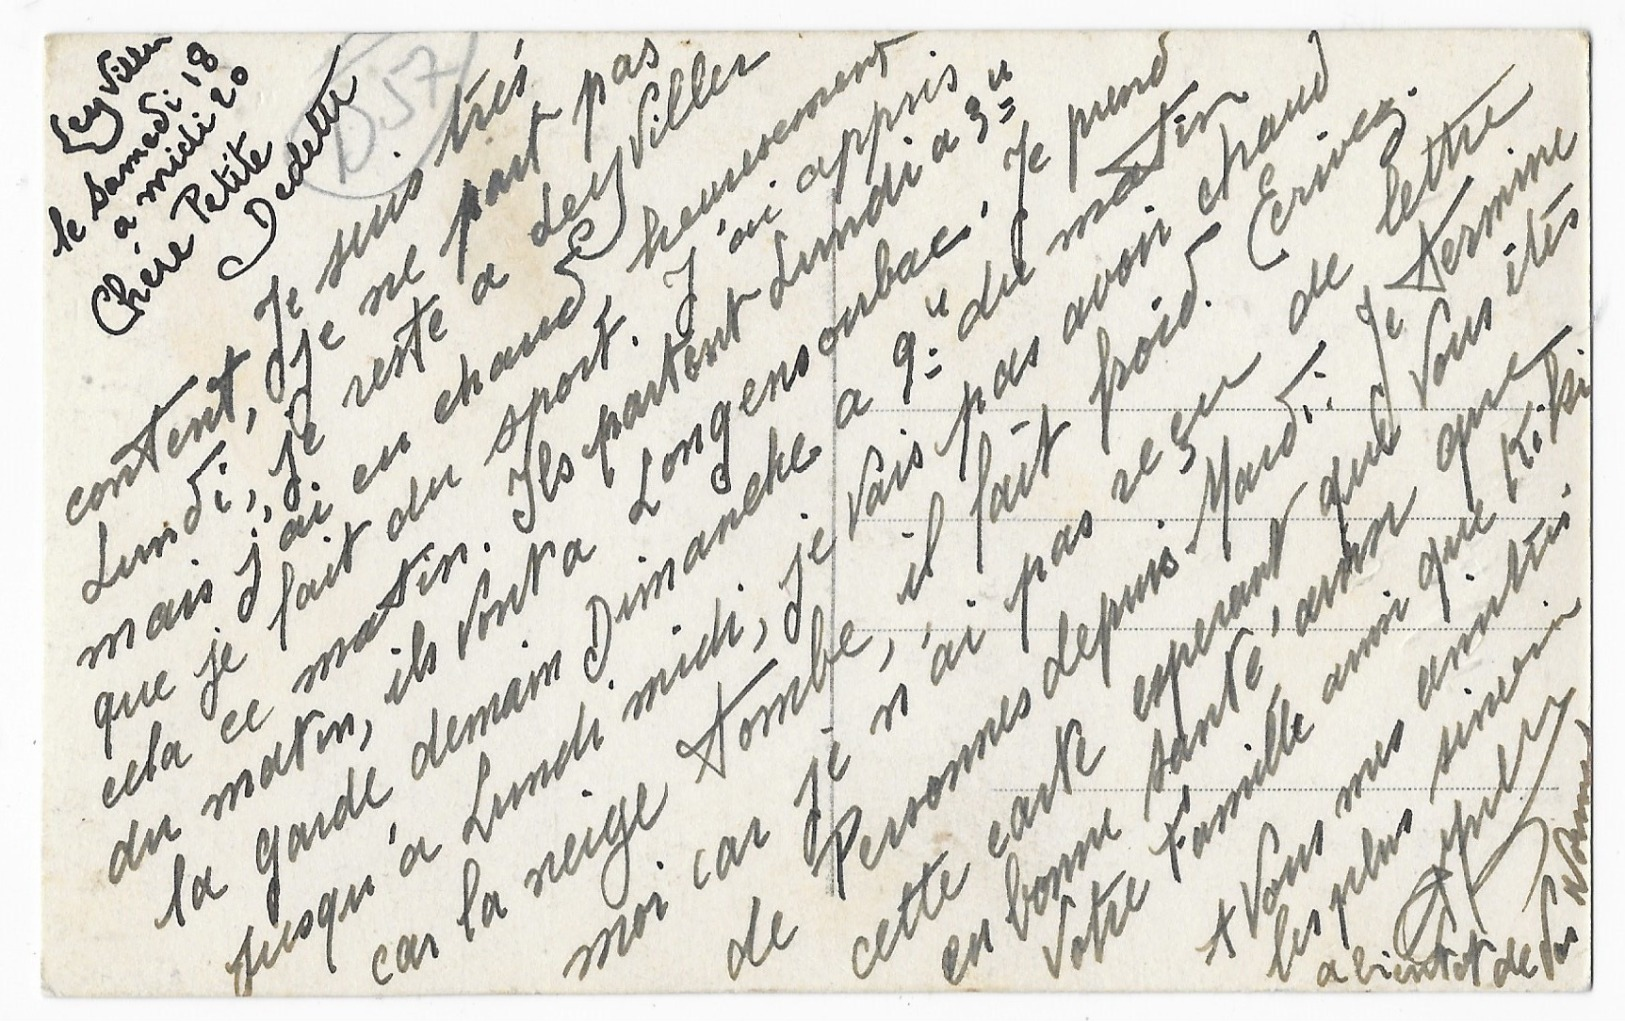 Leyviller
le Samedi 18
a midi 20
D.57
Chère Petite
Dedette
Je suis très
content, Je ne part pas
Lundi, Je reste a Leyviller
mais j'ai eu chaud heureusement
que je fait du sport. J'ai appris
cela ce matin. Ils partent Lundi a 3 H
du matin, ils vont a Longensoubac. Je prend
la garde demain Dimanche a 9 H du matin
jusqu'a Lundi midi, je vais pas avoir chaud
car la neige tombe, il fait froid. Ecrivez.
moi car je n'ai pas reçu de lettre
de Personnes depuis Mardi. Je termine
cette carte esperant que Vous ètes
en bonne santé, ainsi que
Votre Famille ainsi que Kiki
A Vous mes amitiés
les plus sincere
a bientot de Vos